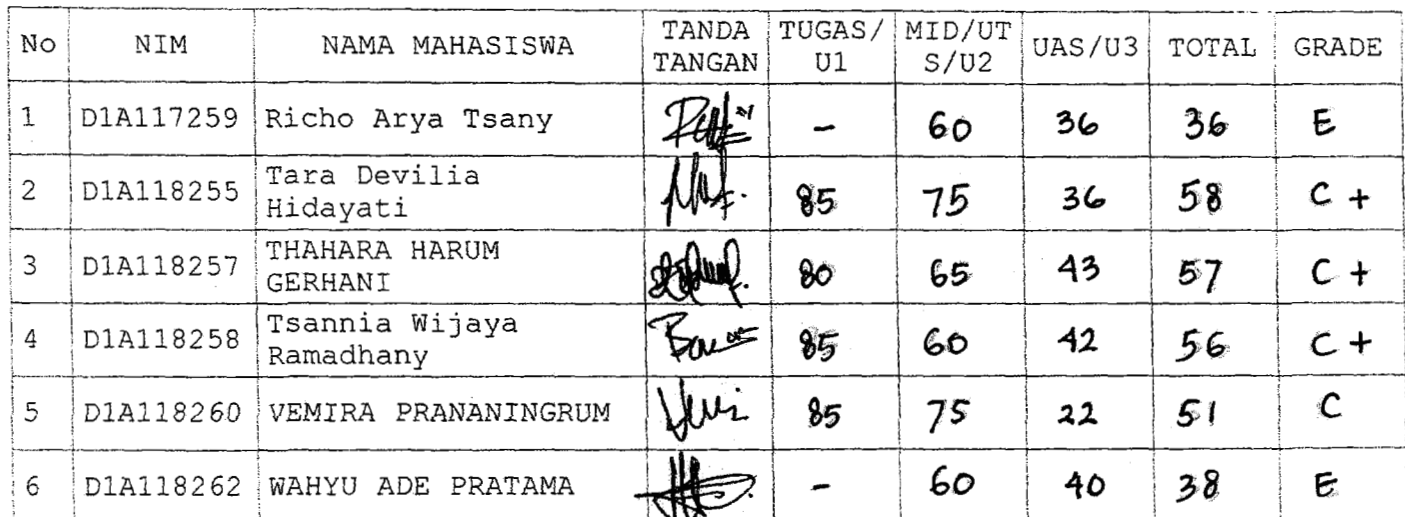 No NIM NAMA MAHASISWA TANDA TANGAN TUGAS/U1 MID/UTS/U2 UAS/U3 TOTAL GRADE
1 D1A117259 Richo Arya Tsany - 60 36 36 E
2 D1A118255 Tara Devilia Hidayati 85 75 36 58 C +
3 D1A118257 THAHARA HARUM GERHANI 80 65 43 57 C +
4 D1A118258 Tsannia Wijaya Ramadhany 85 60 42 56 C +
5 D1A118260 VEMIRA PRANANINGRUM 85 75 22 51 C
6 D1A118262 WAHYU ADE PRATAMA - 60 40 38 E